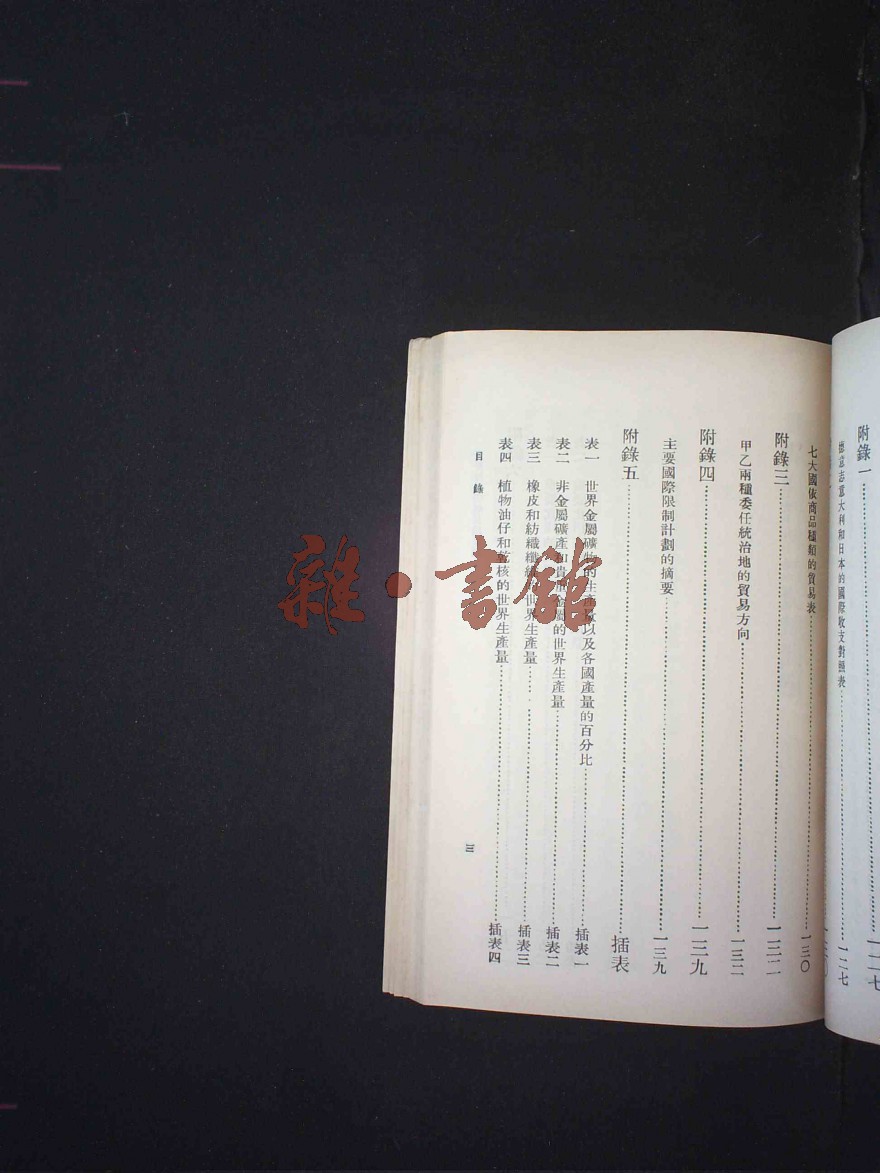 附錄一……一二七
德意志意大利和日本的國際收支對照表……一二七
七大國依商品種類的貿易表……一三〇
附錄三……一三二
甲乙兩種委任統治地的貿易方向……一三二
附錄四……一三九
主要國際限制計劃的摘要……一三九
附錄五……插表
表一 世界金屬礦物的生產量以及各國產量的百分比……插表一
表二 非金屬礦產和貴金屬的世界生產量……插表二
表三 橡皮和紡織纖維世界生產量……插表三
表四 植物油仔和乾核的世界生產量……插表四
目錄
三
雜·書館